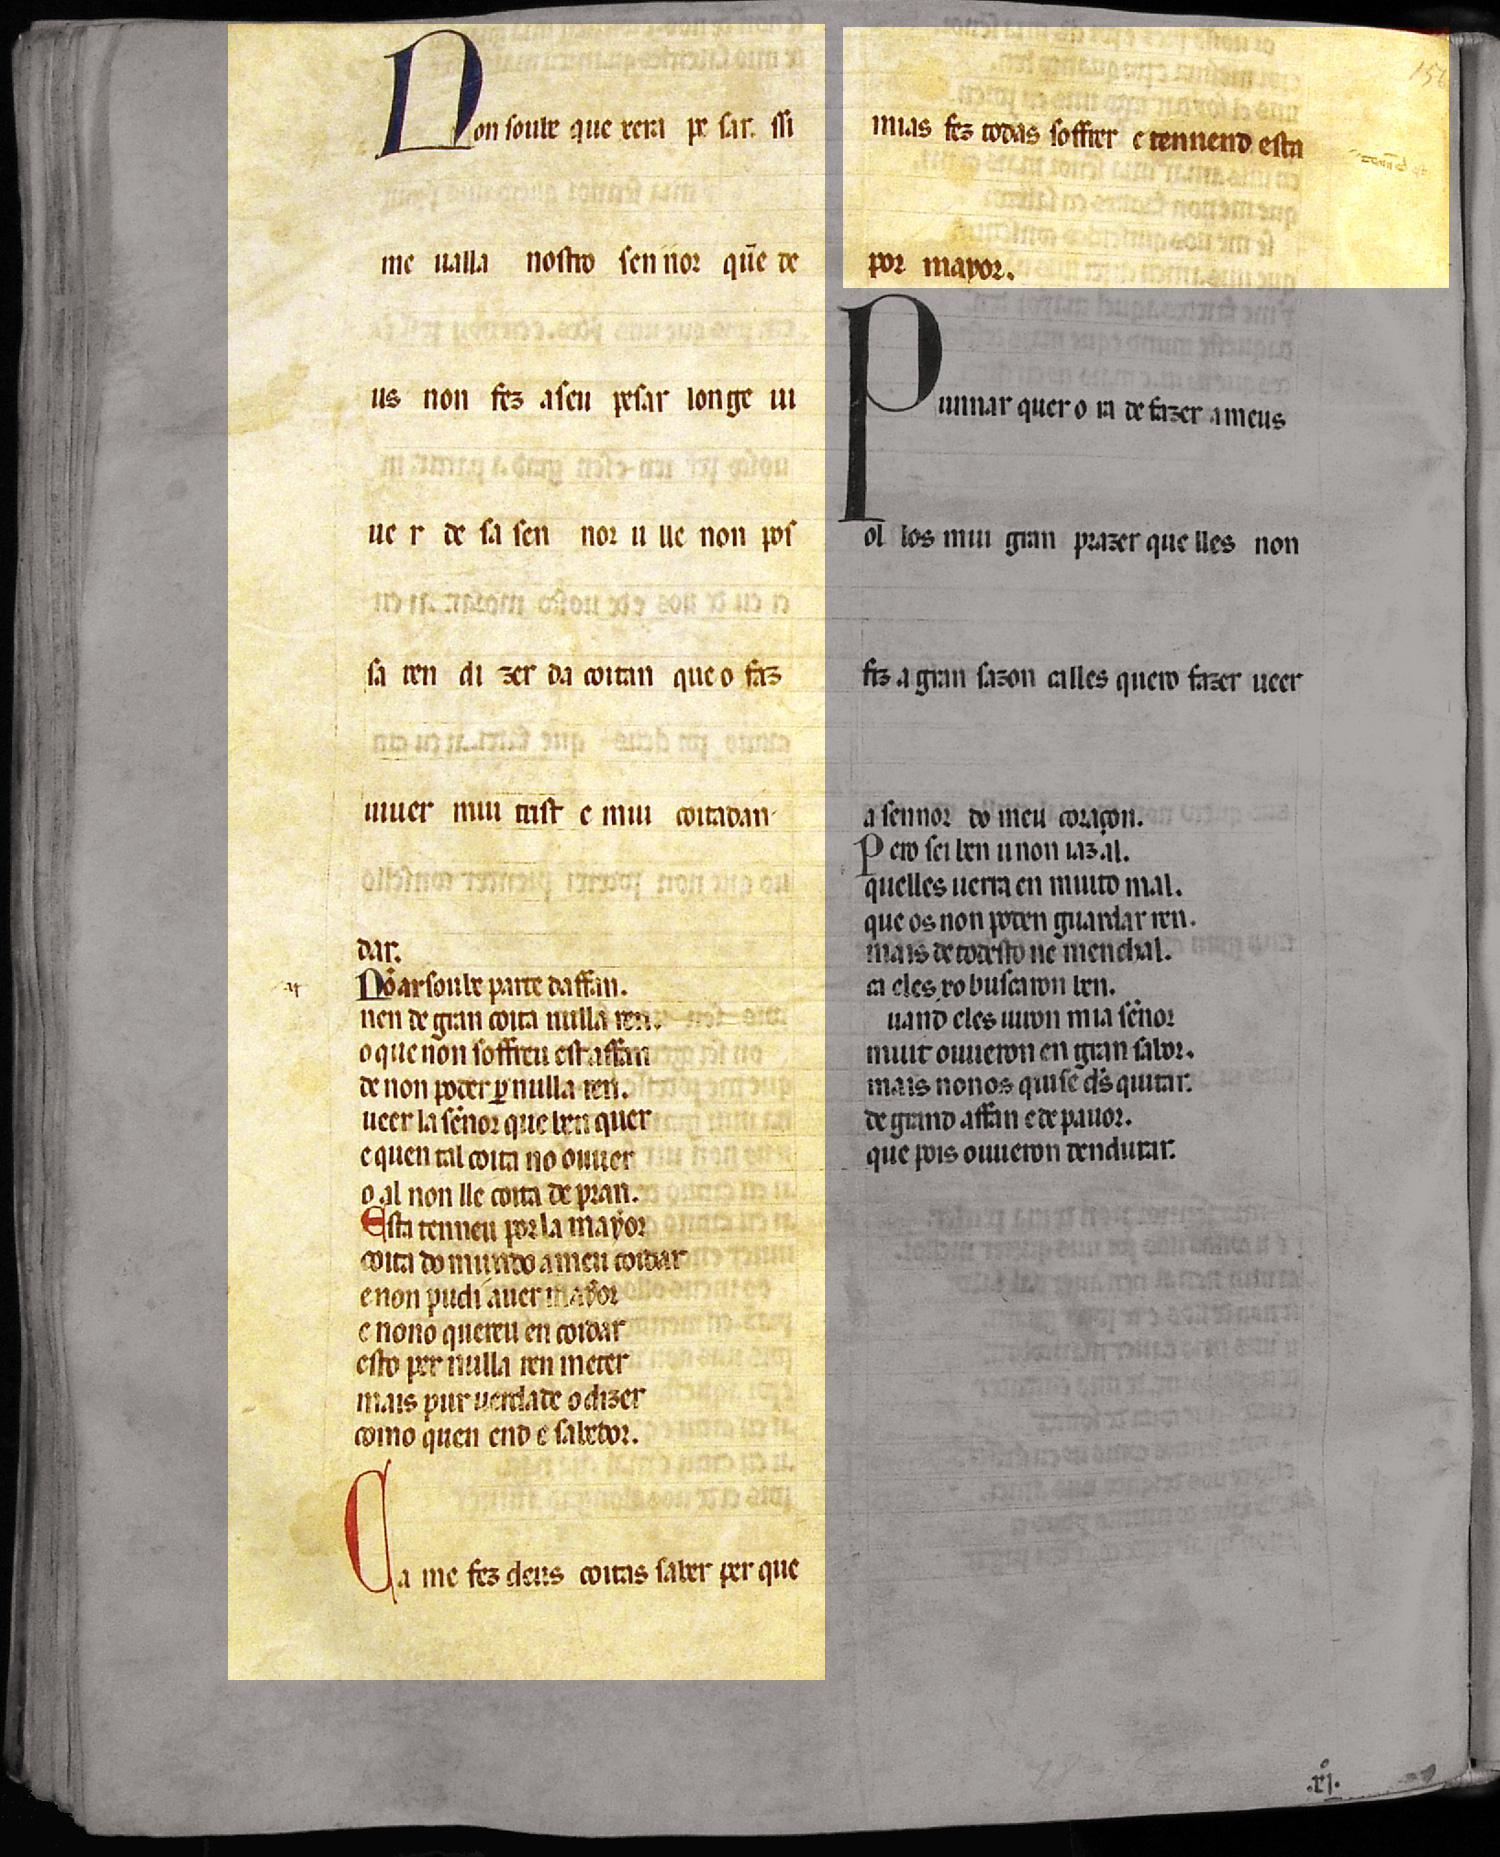 Non soube que xera pe sar. ssi
me ualla nostro sennor que de
us non fez aseu pesar longe ui
ue r de sa sen nor u lle non pos
sa ren di zer da coitan que o faz
uiuer mui trist e mui coitadan
dar.
Nō ar soube parte daffan.
nen de gran coita nulla ren.
o que non soffreu est affan
de non poder ꝑ nulla ren.
ueer la sēnor que ben quer
e quen tal coita no ouuer
o al non lle coita de pran.
Esta tenneu por la mayor
coita do mundo a meu coidar
e non pudi auer mayor
e nono quereu en coidar
esto per nulla ren meter
mais pur uerdade o dizer
como quen end e sabedor.
Ca me fez deus coitas saber per que
mias fez todas soffrer e tennend esta
por mayor.
156
Punnar quer o ia de fazer a meus
ol los mui gran prazer que lles non
fiz a gran sazon ca lles quero fazer ueer
a sennor do meu coraçon.
Pero sei ben u non iaz al.
quelles uerra en muito mal.
que os non poden guardar ren.
mais de todesto ne menchal.
ca eles xo buscaron ben.
uand eles uiron mia sēnor
muit ouueron en gran sabor.
mais nonos quise ds̄ quitar.
de grand affan e de pauor.
que pois ouueron dendurar.
.xj.